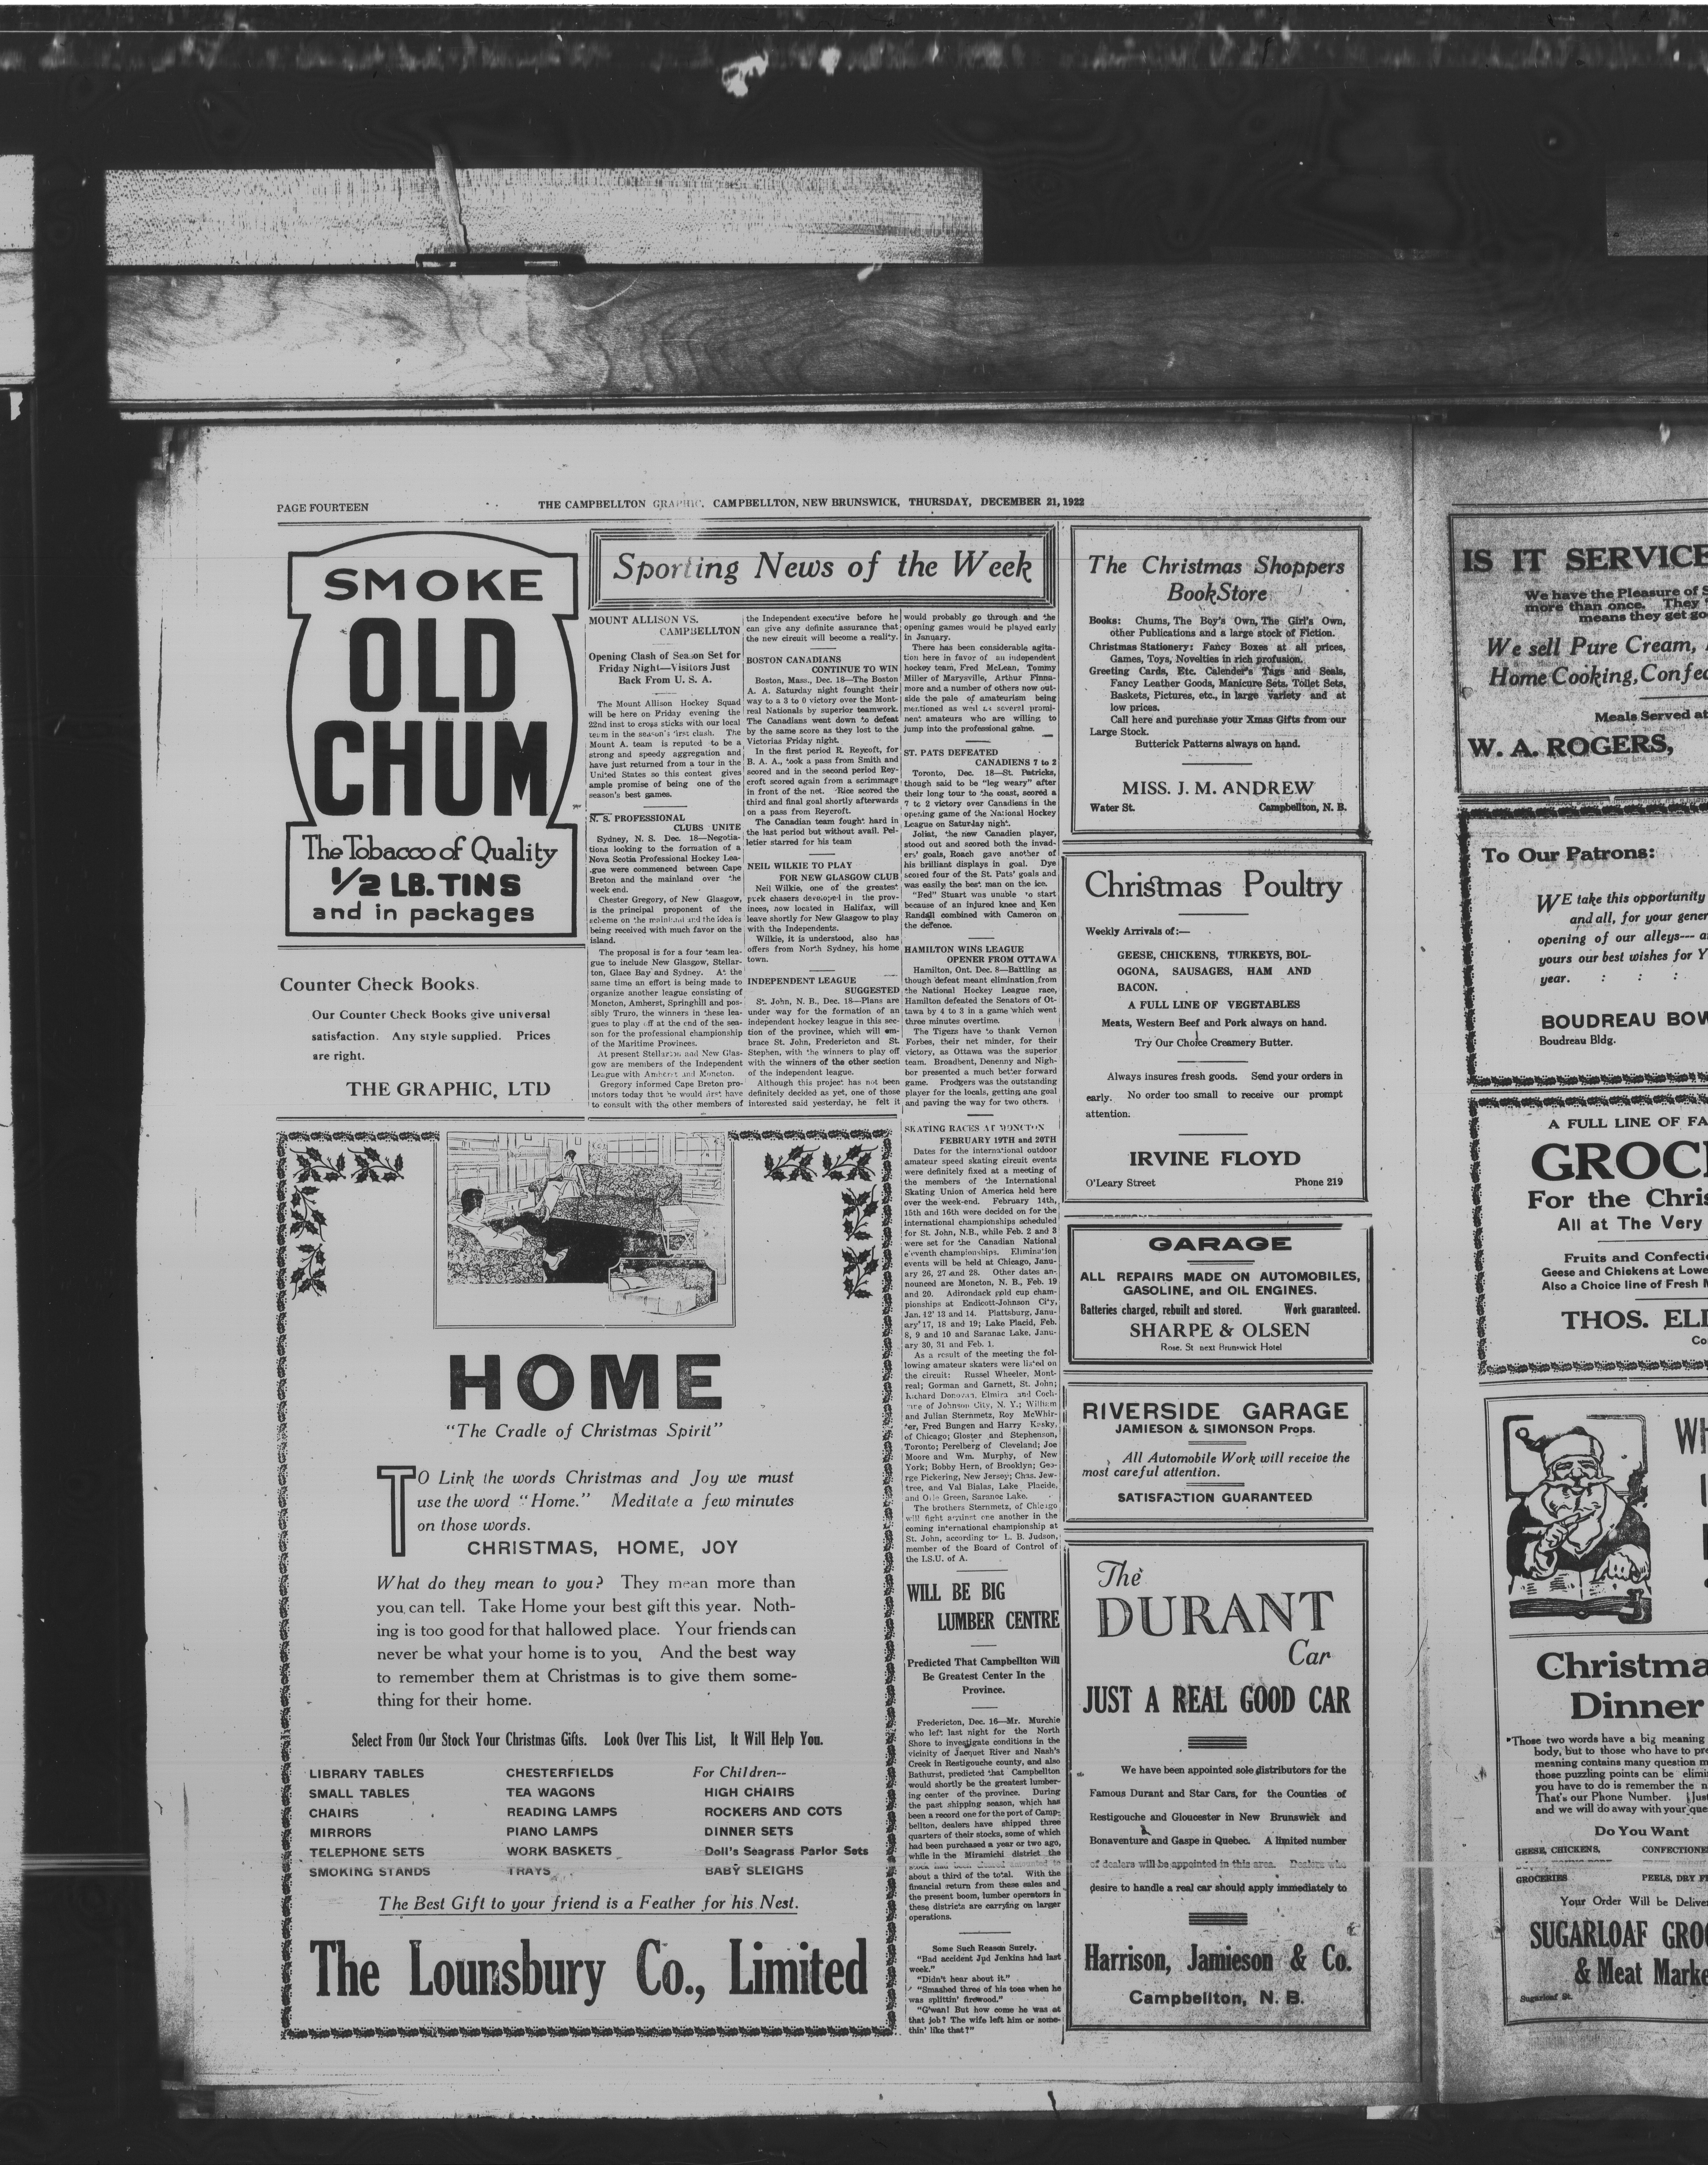 PAGE FOURTEEN
THE CAMPBELLTON GRAPHIC, CAMPBELLTON, NEW BRUNSWICK, THURSDAY, DECEMBER 21, 1922
SMOKE
OLD
CHUM
The Tobacco of Quality
1/2 LB. TINS
and in packages
Counter Check Books.
Our Counter Check Books give universal
satisfaction. Any style supplied. Prices
are right.
THE GRAPHIC, LTD
Sporting News of the Week
MOUNT ALLISON VS.
CAMPBELLTON
Opening Clash of Season Set for
Friday Night—Visitors Just
Back From U. S. A.
The Mount Allison Hockey Squad
will be here on Friday evening the
22nd inst to cross sticks with our local
team in the season's first clash. The
Mount A. team is reputed to be a
strong and speedy aggregation and
have just returned from a tour in the
United States so this contest gives
ample promise of being one of the
season's best games.
N. S. PROFESSIONAL
CLUBS UNITE
Sydney, N. S. Dec. 18—Negotia-
tions looking to the formation of a
Nova Scotia Professional Hockey Lea-
gue were commenced between Cape
Breton and the mainland over the
week end.
Chester Gregory, of New Glasgow,
is the principal proponent of the
scheme on the mainland and the idea is
being received with much favor on the
island.
The proposal is for a four team lea-
gue to include New Glasgow, Stellar-
ton, Glace Bay and Sydney. At the
same time an effort is being made to
organize another league consisting of
Moncton, Amherst, Springhill and pos-
sibly Truro, the winners in these lea-
gues to play off at the end of the sea-
son for the professional championship
of the Maritime Provinces.
At present Stellarton and New Glas-
gow are members of the Independent
League with Amherst and Moncton.
Gregory informed Cape Breton pro-
motors today that he would first have
to consult with the other members of
the Independent executive before he
can give any definite assurance that
the new circuit will become a reality.
BOSTON CANADIANS
CONTINUE TO WIN
Boston, Mass., Dec. 18—The Boston
A. A. Saturday night fought their
way to a 3 to 0 victory over the Mont-
real Nationals by superior teamwork.
The Canadians went down to defeat
by the same score as they lost to the
Victorias Friday night.
In the first period R. Reycoft, for
B. A. A., took a pass from Smith and
scored and in the second period Rey-
croft scored again from a scrimmage
in front of the net. Rice scored the
third and final goal shortly afterwards
on a pass from Reycroft.
The Canadian team fought hard in
the last period but without avail. Pel-
letier starred for his team
NEIL WILKIE TO PLAY
FOR NEW GLASGOW CLUB
Neil Wilkie, one of the greatest
puck chasers developed in the prov-
inces, now located in Halifax, will
leave shortly for New Glasgow to play
with the Independents.
Wilkie, it is understood, also has
offers from North Sydney, his home
town.
INDEPENDENT LEAGUE
SUGGESTED
St. John, N. B., Dec. 18—Plans are
under way for the formation of an
independent hockey league in this sec-
tion of the province, which will em-
brace St. John, Fredericton and St.
Stephen, with the winners to play off
with the winners of the other section
of the independent league.
Although this project has not been
definitely decided as yet, one of those
interested said yesterday, he felt it
would probably go through and the
opening games would be played early
in January.
There has been considerable agita-
tion here in favor of an independent
hockey team, Fred McLean, Tommy
Miller of Marysville, Arthur Finna-
more and a number of others now out-
side the pale of amateurism being
mentioned as well as several promi-
nent amateurs who are willing to
jump into the professional game.
ST. PATS DEFEATED
CANADIENS 7 to 2
Toronto, Dec. 18—St. Patricks,
though said to be "leg weary" after
their long tour to the coast, scored a
7 to 2 victory over Canadiens in the
opening game of the National Hockey
League on Saturday night.
Joliat, the new Canadien player,
stood out and scored both the invad-
ers' goals, Roach gave another of
his brilliant displays in goal. Dye
scored four of the St. Pats' goals and
was easily the best man on the ice.
"Red" Stuart was unable to start
because of an injured knee and Ken
Randall combined with Cameron on
the defence.
HAMILTON WINS LEAGUE
OPENER FROM OTTAWA
Hamilton, Ont. Dec. 8—Battling as
though defeat meant elimination from
the National Hockey League race,
Hamilton defeated the Senators of Ot-
tawa by 4 to 3 in a game which went
three minutes overtime.
The Tigers have to thank Vernon
Forbes, their net minder, for their
victory, as Ottawa was the superior
team. Broadbent, Denenny and Nigh-
bor presented a much better forward
game. Prodgers was the outstanding
player for the locals, getting one goal
and paving the way for two others.
SKATING RACES AT MONCTON
FEBRUARY 19TH and 20TH
Dates for the international outdoor
amateur speed skating circuit events
were definitely fixed at a meeting of
the members of the International
Skating Union of America held here
over the week-end. February 14th,
15th and 16th were decided on for the
international championships scheduled
for St. John, N.B., while Feb. 2 and 3
were set for the Canadian National
eleventh championships. Elimination
events will be held at Chicago, Janu-
ary 26, 27 and 28. Other dates an-
nounced are Moncton, N. B., Feb. 19
and 20. Adirondack gold cup cham-
pionships at Endicott-Johnson City,
Jan. 12' 13 and 14. Plattsburg, Janu-
ary' 17, 18 and 19; Lake Placid, Feb.
8, 9 and 10 and Saranac Lake, Janu-
ary 30, 31 and Feb. 1.
As a result of the meeting the fol-
lowing amateur skaters were listed on
the circuit: Russel Wheeler, Mont-
real; Gorman and Garnett, St. John;
Richard Donovan, Elmira and Coch-
of Johnson City, N. Y.; William
and Julian Sternmetz, Roy McWhir-
ter, Fred Bungen and Harry Kasky,
of Chicago; Gloster and Stephenson,
Toronto; Perelberg of Cleveland; Joe
Moore and Wm. Murphy, of New
York; Bobby Hern, of Brooklyn; Geo-
rge Pickering, New Jersey; Chas. Jew-
tree, and Val Bialas, Lake Placide,
and Green, Saranac Lake.
The brothers Sternmetz, of Chicago
will fight against one another in the
coming international championship at
St. John, according to L. B. Judson,
member of the Board of Control of
the I.S.U. of A.
WILL BE BIG
LUMBER CENTRE
Predicted That Campbellton Will
Be Greatest Center In the
Province.
Fredericton, Dec. 16—Mr. Murchie
who left last night for the North
Shore to investigate conditions in the
vicinity of Jacquet River and Nash's
Creek in Restigouche county, and also
Bathurst, predicted that Campbellton
would shortly be the greatest lumber-
ing center of the province. During
the past shipping season, which has
been a record one for the port of Camp-
bellton, dealers have shipped three
quarters of their stocks, some of which
had been purchased a year or two ago,
while in the Miramichi district the
about a third of the total. With the
financial return from these sales and
the present boom, lumber operators in
these districts are carrying on larger
operations.
Some Such Reason Surely.
"Bad accident Jud Jenkins had last
week."
"Didn't hear about it."
"Smashed three of his toes when he
was splittin' firewood."
"G'wan! But how come he was at
that job? The wife left him or some-
thin' like that?"
HOME
"The Cradle of Christmas Spirit"
TO Link the words Christmas and Joy we must
use the word "Home." Meditate a few minutes
on those words.
CHRISTMAS, HOME, JOY
What do they mean to you? They mean more than
you can tell. Take Home your best gift this year. Noth-
ing is too good for that hallowed place. Your friends can
never be what your home is to you, And the best way
to remember them at Christmas is to give them some-
thing for their home.
Select From Our Stock Your Christmas Gifts. Look Over This List, It Will Help You.
LIBRARY TABLES CHESTERFIELDS For Children--
SMALL TABLES TEA WAGONS HIGH CHAIRS
CHAIRS READING LAMPS ROCKERS AND COTS
MIRRORS PIANO LAMPS DINNER SETS
TELEPHONE SETS WORK BASKETS Doll's Seagrass Parlor Sets
SMOKING STANDS TRAYS BABY SLEIGHS
The Best Gift to your friend is a Feather for his Nest.
The Lounsbury Co., Limited
The Christmas Shoppers
BookStore
Books: Chums, The Boy's Own, The Girl's Own,
other Publications and a large stock of Fiction.
Christmas Stationery: Fancy Boxes at all prices,
Games, Toys, Novelties in rich profusion.
Greeting Cards, Etc. Calender's Tags and Seals,
Fancy Leather Goods, Manicure Sets, Toilet Sets,
Baskets, Pictures, etc., in large variety and at
low prices.
Call here and purchase your Xmas Gifts from our
Large Stock.
Butterick Patterns always on hand.
MISS. J. M. ANDREW
Water St. Campbellton, N. B.
Christmas Poultry
Weekly Arrivals of:—
GEESE, CHICKENS, TURKEYS, BOL-
OGONA, SAUSAGES, HAM AND
BACON.
A FULL LINE OF VEGETABLES
Meats, Western Beef and Pork always on hand.
Try Our Choice Creamery Butter.
Always insures fresh goods. Send your orders in
early. No order too small to receive our prompt
attention.
IRVINE FLOYD
O'Leary Street Phone 219
GARAGE
ALL REPAIRS MADE ON AUTOMOBILES,
GASOLINE, and OIL ENGINES.
Batteries charged, rebuilt and stored. Work guaranteed.
SHARPE & OLSEN
Rose. St next Brunswick Hotel
RIVERSIDE GARAGE
JAMIESON & SIMONSON Props.
All Automobile Work will receive the
most careful attention.
SATISFACTION GUARANTEED
The
DURANT
Car
JUST A REAL GOOD CAR
We have been appointed sole distributors for the
Famous Durant and Star Cars, for the Counties of
Restigouche and Gloucester in New Brunswick and
Bonaventure and Gaspe in Quebec. A limited number
of dealers will be appointed in this area. Dealers who
desire to handle a real car should apply immediately to
Harrison, Jamieson & Co.
Campbellton, N. B.
IS IT SERVICE
We have the Pleasure of
more than once. They
means they get
We sell Pure Cream,
Home Cooking,
Meals Served at
W. A. ROGERS,
To Our Patrons:
WE take this opportunity
and all, for your
opening of our alleys---
yours our best wishes for
year. : : :
BOUDREAU
Boudreau Bldg.
A FULL LINE OF
For the
All at The Very
Fruits and
Geese and Chickens at
Also a Choice line of Fresh
THOS.
Christmas
Dinner
"Those two words have a big meaning
body, but to those who have to
meaning contains many question
those puzzling points can be
you have to do is remember the
That's our Phone Number.
and we will do away with your
Do You Want
GEESE, CHICKENS,
GROCERIES PEELS, DRY
Your Order Will be
SUGARLOAF
& Meat
Sugarloaf St.